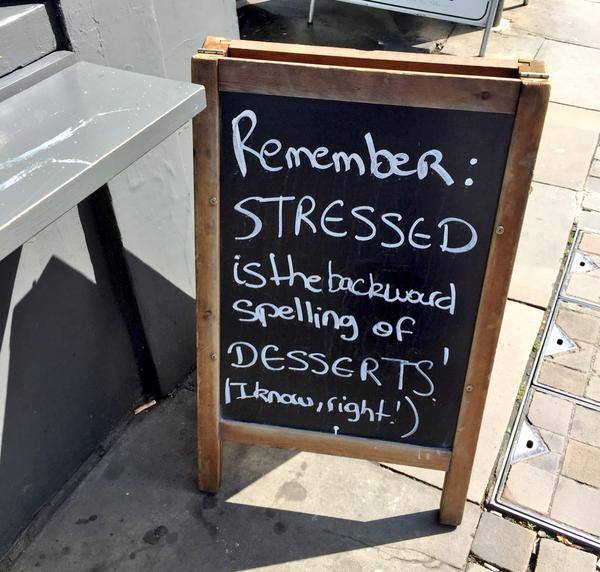 Remember:
STRESSED
is the backward
spelling of
DESSERTS!
(I know, right!)